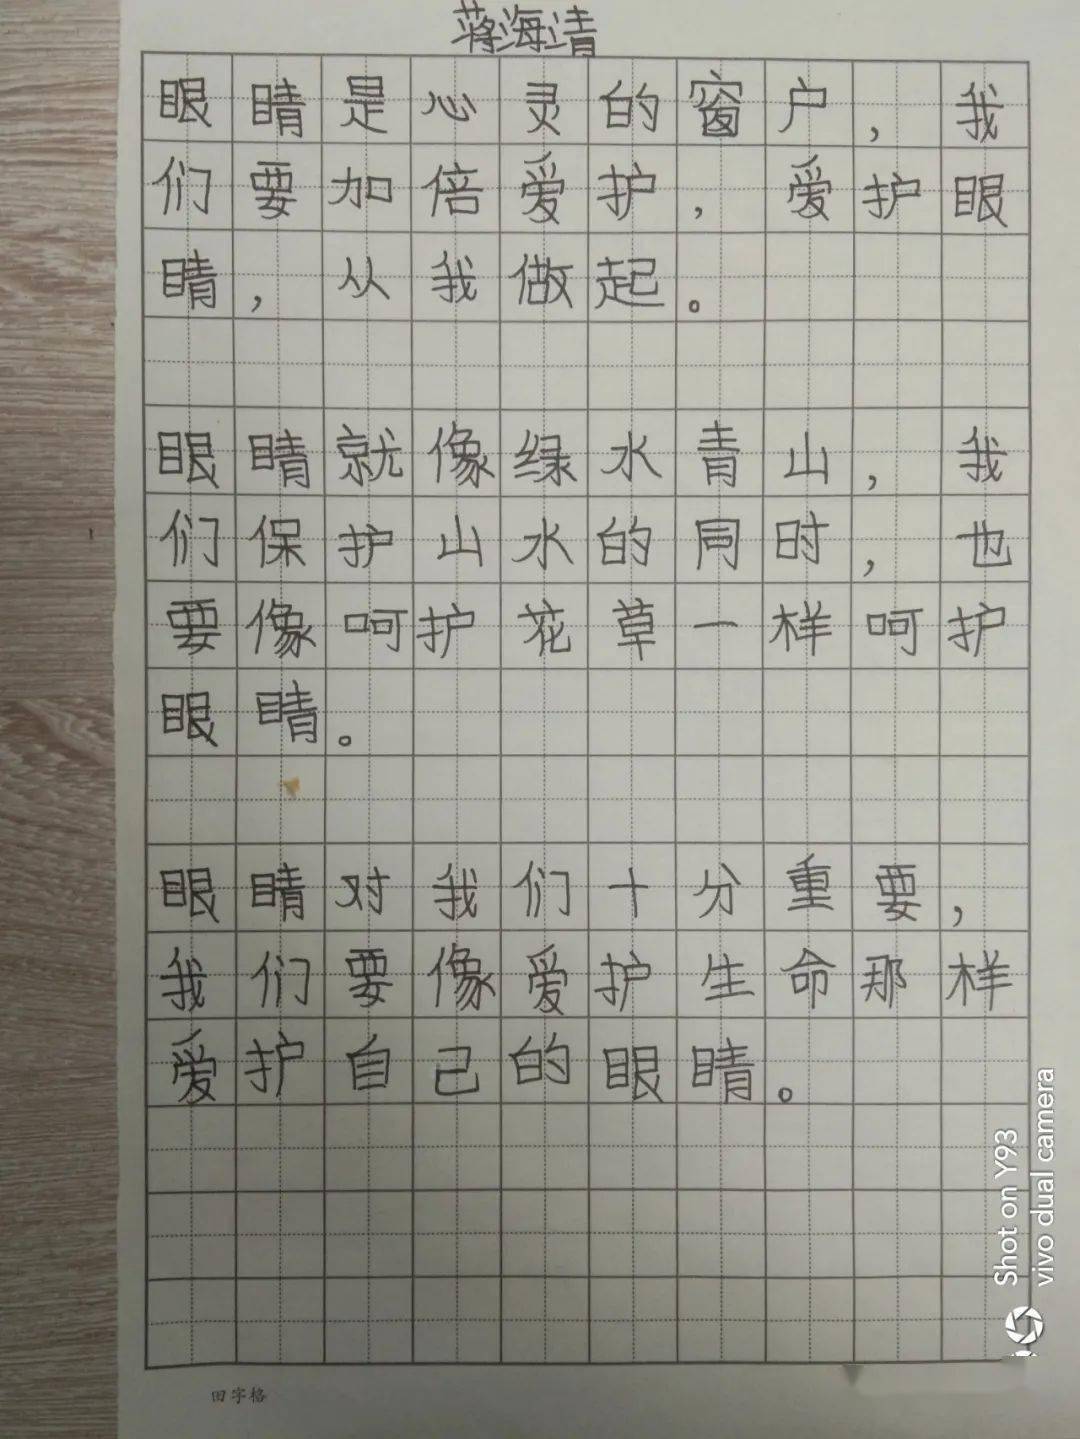 蒋海清
眼睛是心灵的窗户，我
们要加倍爱护，爱护眼
睛，从我做起。
眼睛就像绿水青山，我
们保护山水的同时，也
要像呵护花草一样呵护
眼睛。
眼睛对我们十分重要，
我们要像爱护生命那样
爱护自己的眼睛。
田字格
Shot on Y93
vivo dual camera